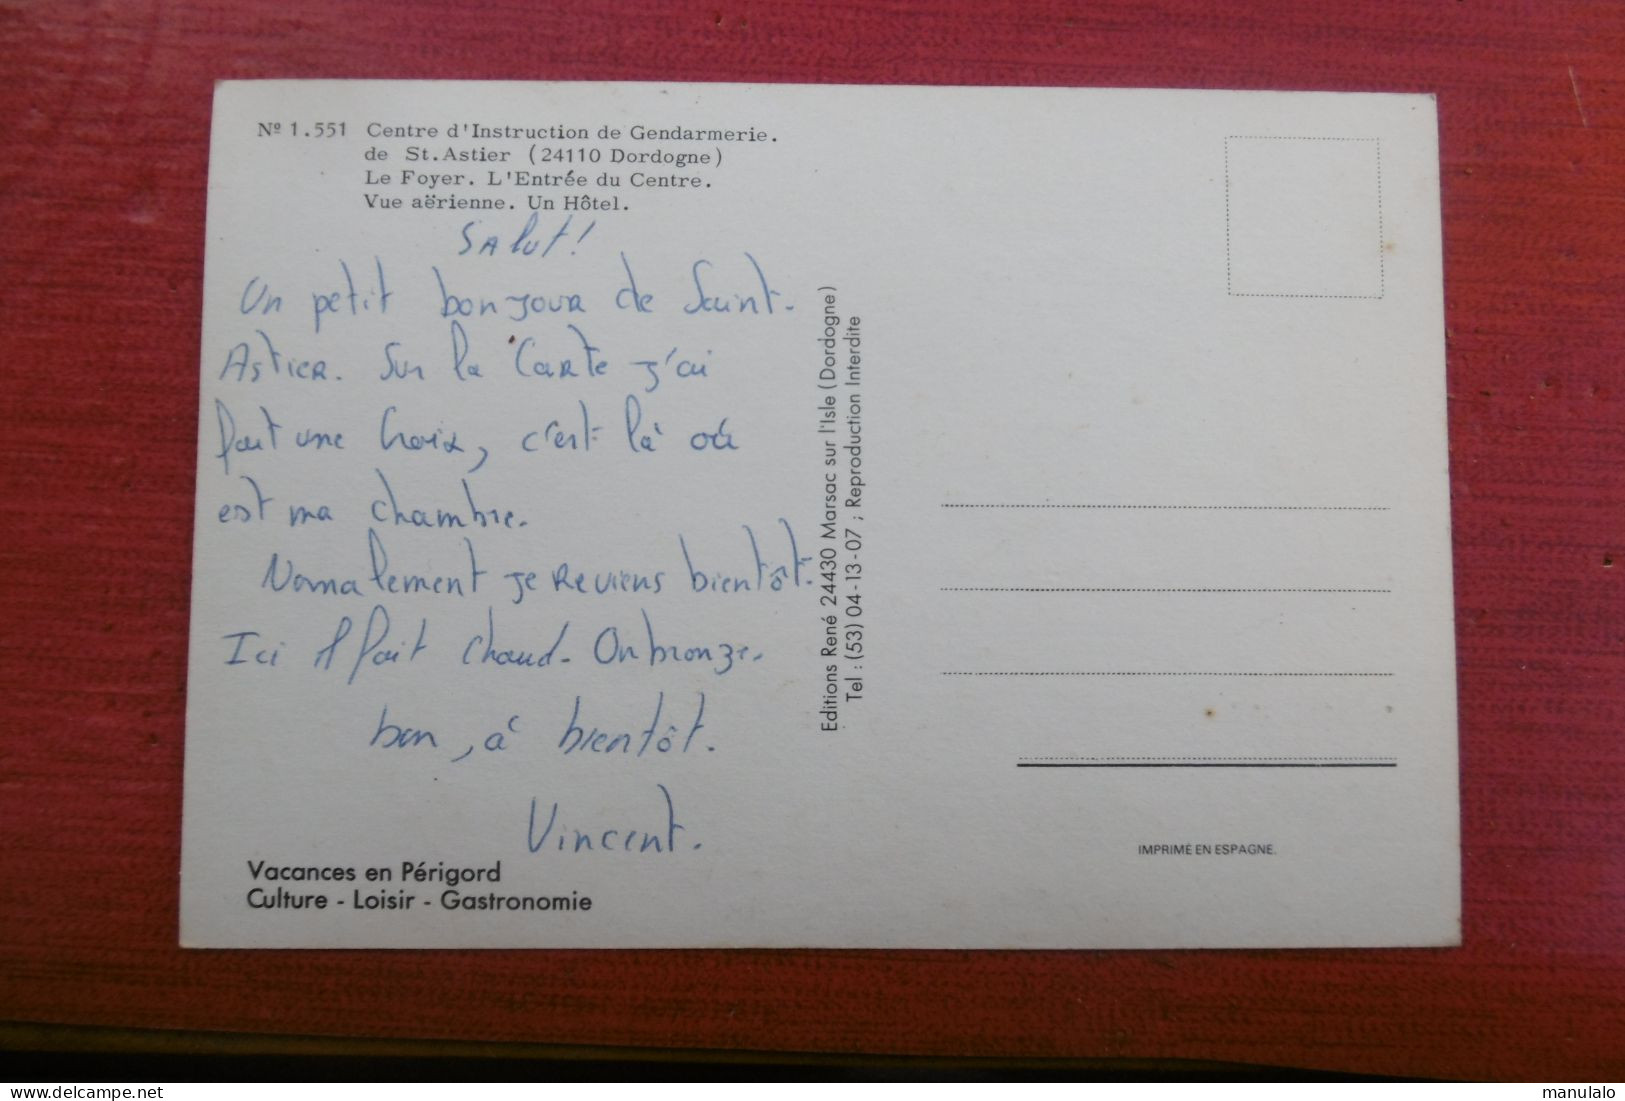 Nº 1.551 Centre d'Instruction de Gendarmerie.
de St.Astier (24110 Dordogne)
Le Foyer. L'Entrée du Centre.
Vue aërienne. Un Hôtel.
Salut!
Un petit bonjour de Saint-
Astier. Sur la Carte j'ai
fait une Croix, c'est là où
est ma chambre.
Nomalement je reviens bientôt.
Ici il fait chaud. On bronze.
bon, à bientôt.
Vincent.
Vacances en Périgord
Culture - Loisir - Gastronomie
Editions René 24430 Marsac sur l'Isle (Dordogne)
Tel : (53) 04-13-07 ; Reproduction Interdite
IMPRIMÉ EN ESPAGNE.
www.delcampe.net
manulalo